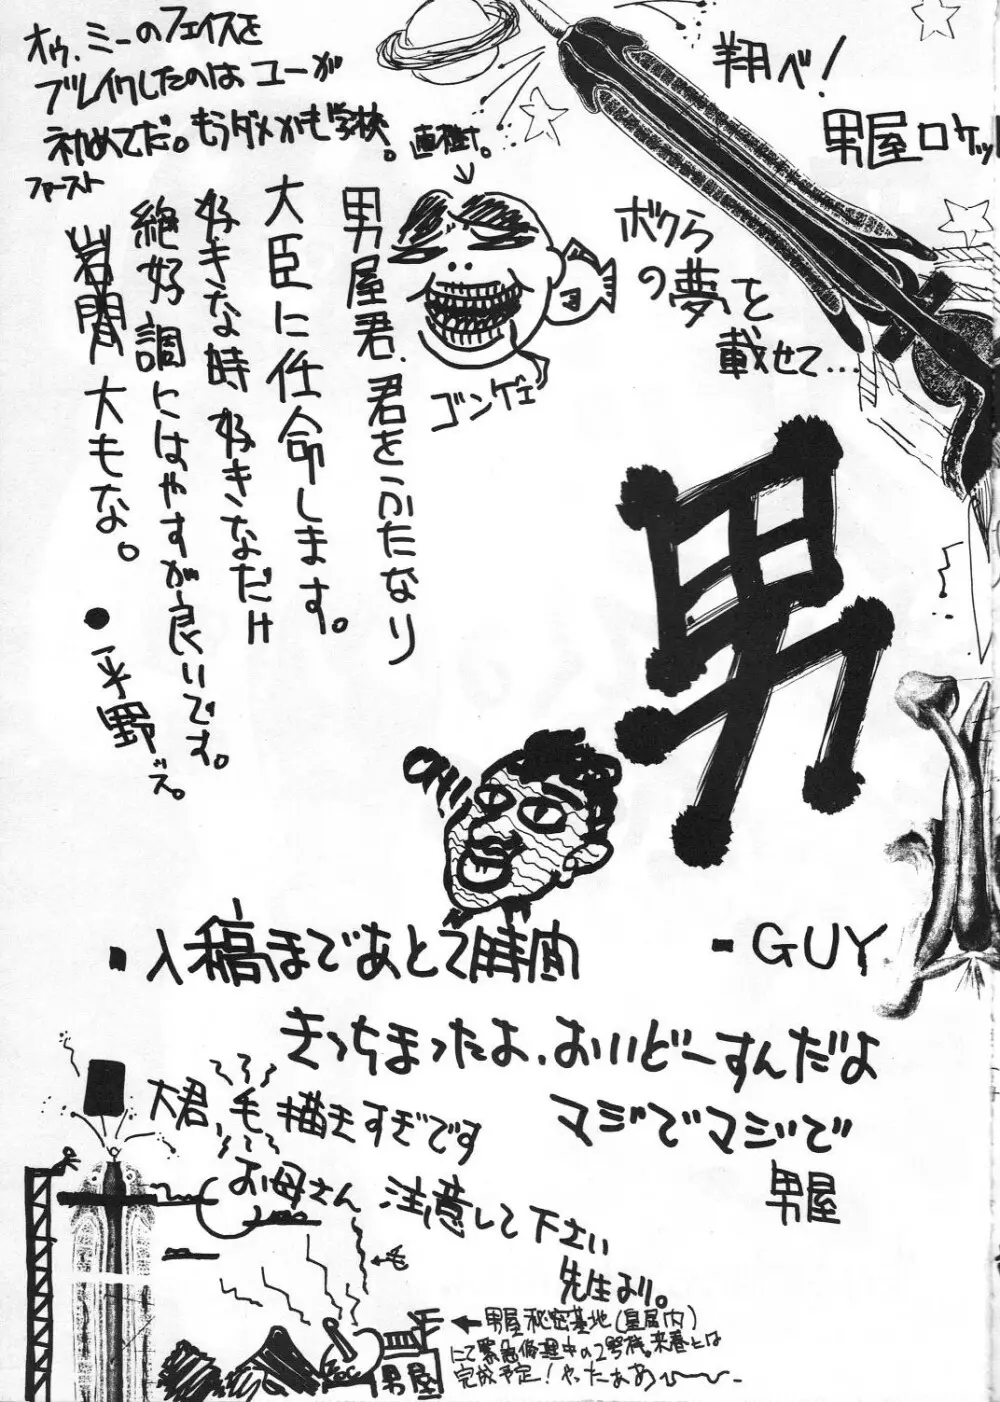 オゥ、ミーのフェイスを
ブレイクしたのはユーが
初めてだ。もうダメかも学校。直樹。
ファースト
翔べ!
男屋ロケット
ボクら
の夢を
載せて…
ゴンゲェ
男屋君、君をふたなり
大臣に任命します。
好きな時好きなだけ
絶好調にはやすが良いです。
岩間大もな。
●平野ズ。
男
CHU
・入稿まであと2時間
・GUY
きっちまったよ、おいどーすんだよ
マジでマジで
男屋
大君、毛描きすぎです
お母さん注意して下さい
先生より。
←毛
←男屋秘密基地(皇居内)
にて緊急修理中の2号機。来春には
完成予定!やったぁあ〜
男屋